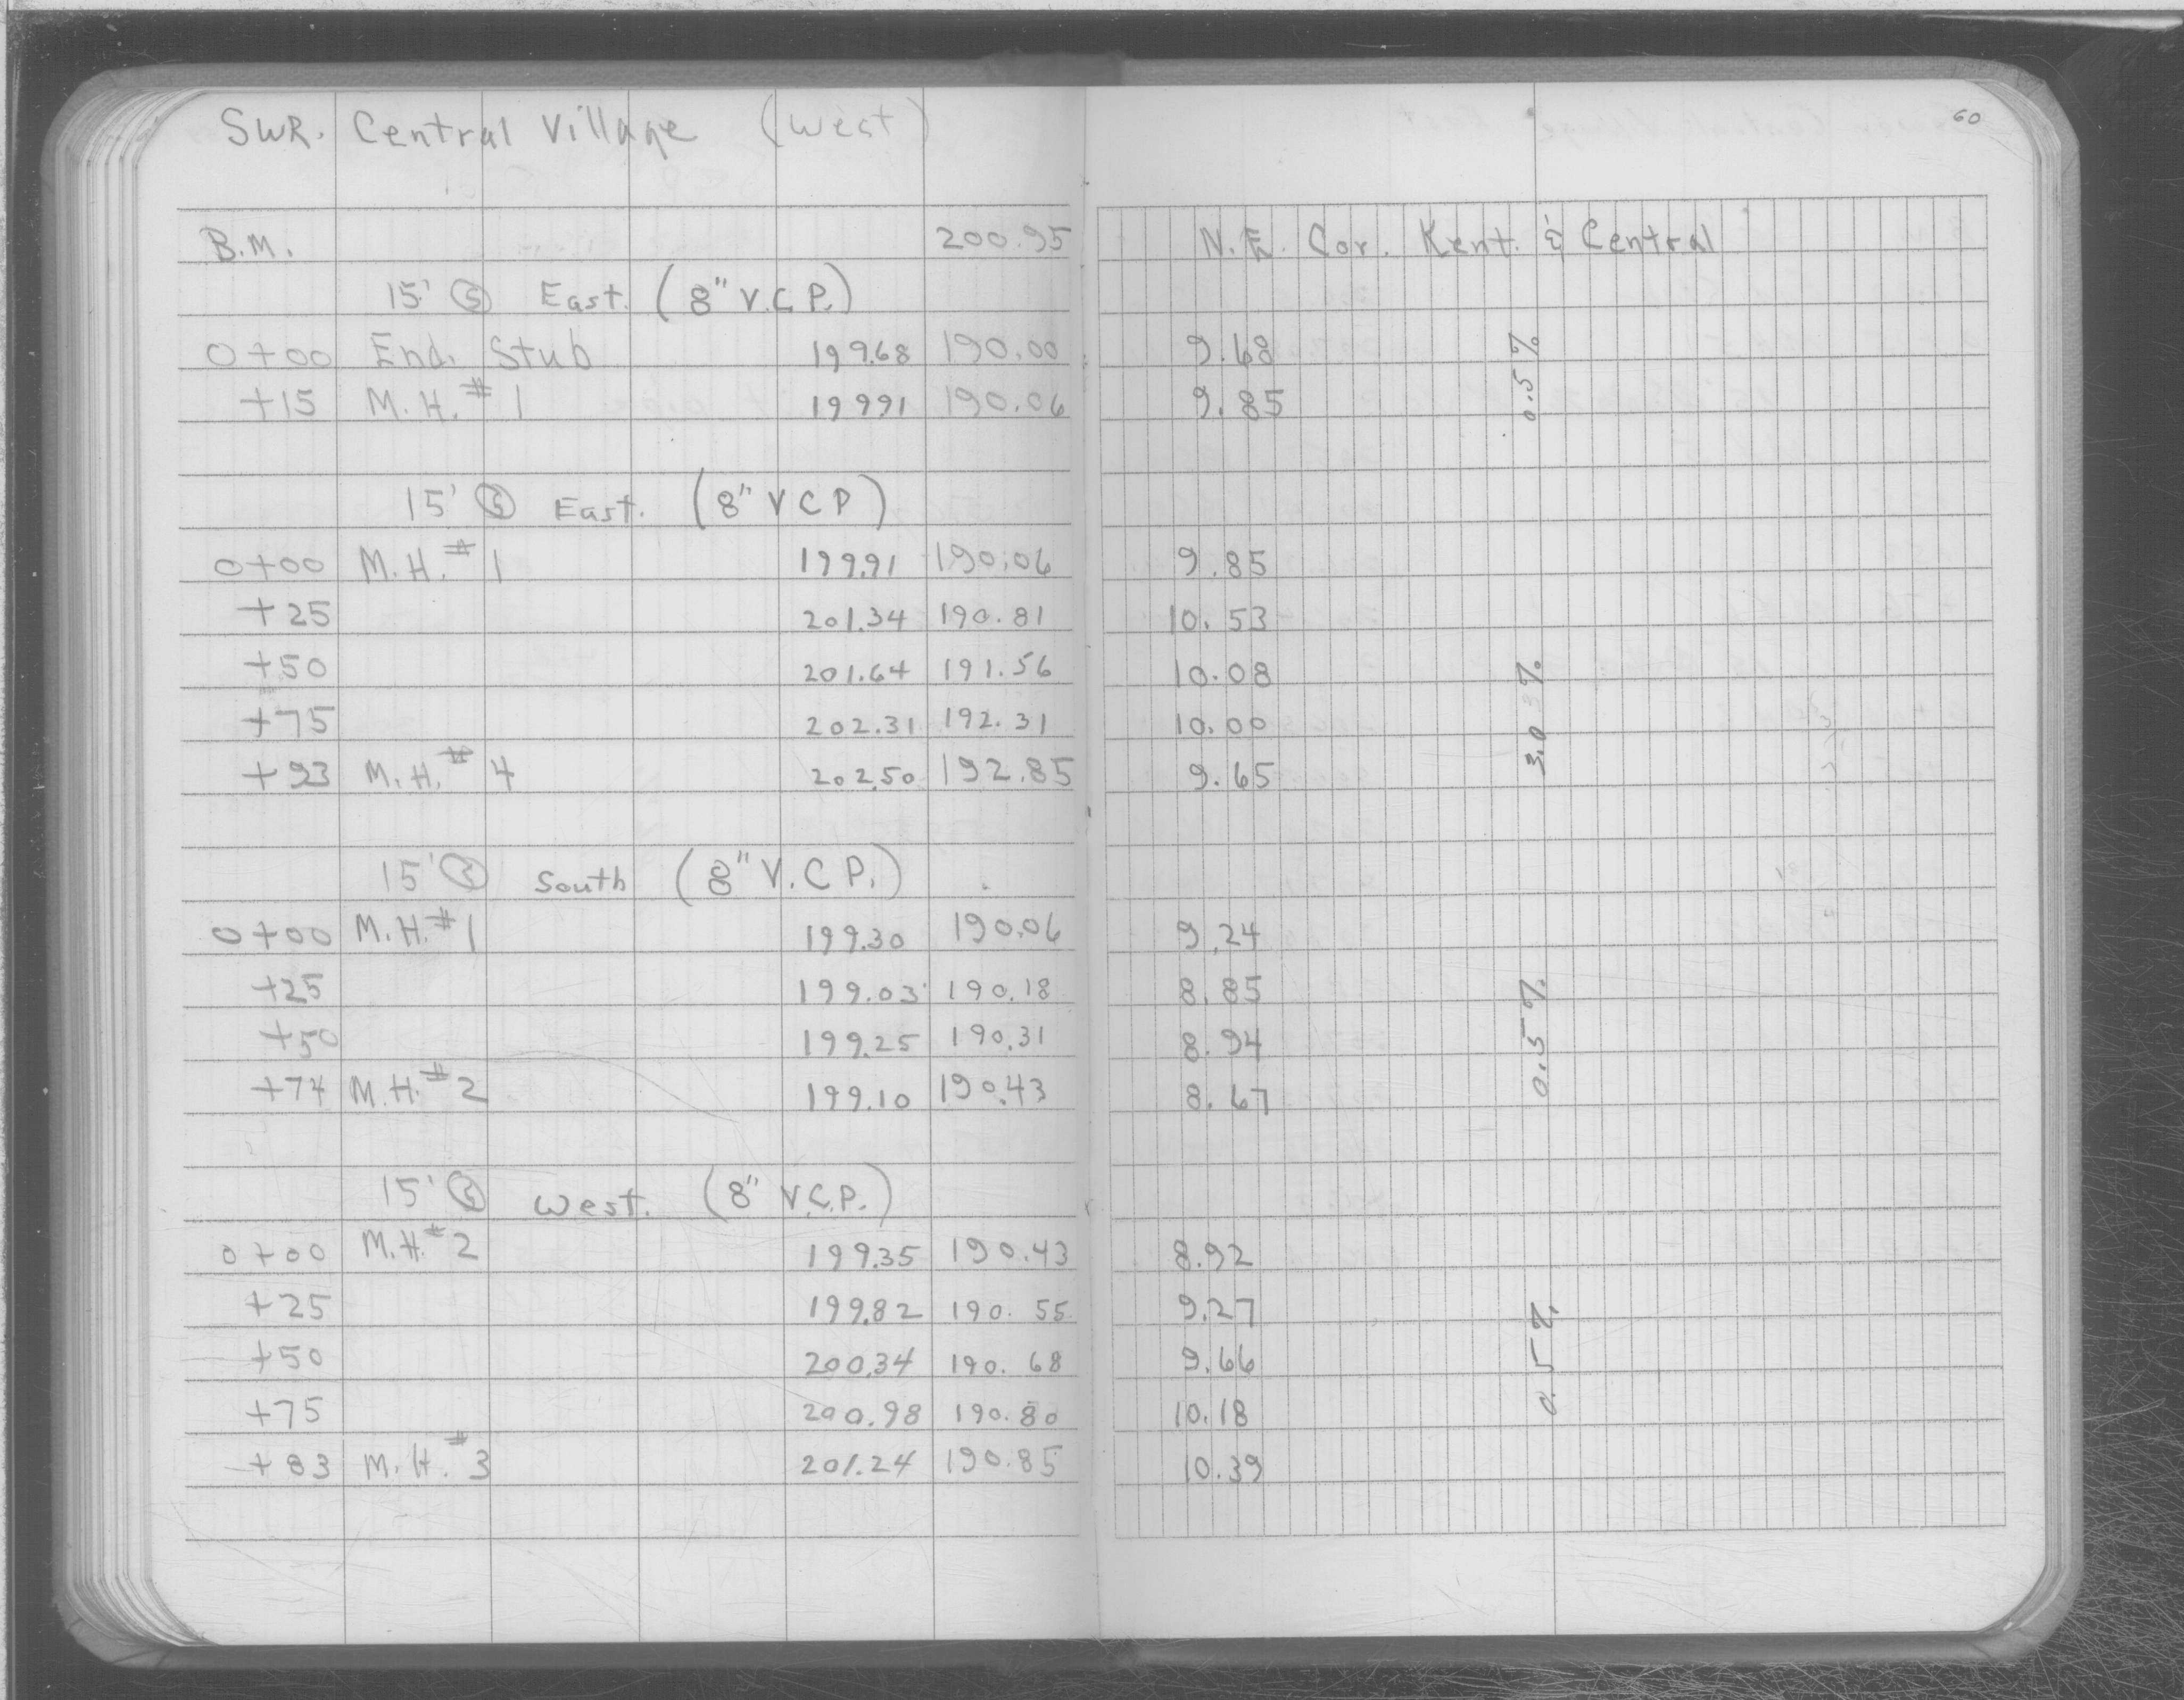 60
SWR. Central Village (West)
B.M. 200.95 N.E. Cor. Kent. & Central
15' East. (8" V.C.P.)
0+00 End. Stub 199.68 190.00 9.68
+15 M.H. #1 199.91 190.06 9.85
0.5%
15' East. (8" V C P)
0+00 M.H. #1 199.91 190.06 9.85
+25 201.34 190.81 10.53
+50 201.64 191.56 10.08
+75 202.31 192.31 10.00
+93 M.H. #4 202.50 192.85 9.65
3.0%
15' South (8" V.C.P.)
0+00 M.H. #1 199.30 190.06 9.24
+25 199.03 190.18 8.85
+50 199.25 190.31 8.94
+74 M.H. #2 199.10 190.43 8.67
0.5%
15' West. (8" V.C.P.)
0+00 M.H. #2 199.35 190.43 8.92
+25 199.82 190.55 9.27
+50 200.34 190.68 9.66
+75 200.98 190.80 10.18
+83 M.H. #3 201.24 190.85 10.39
0.5%